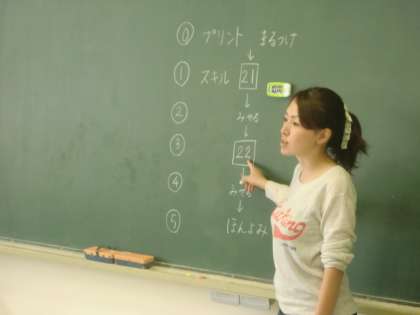 ⓪ プリント まるつけ
① スキル 21
② みせる
③ 22
④ みせる
⑤ ほんよみ